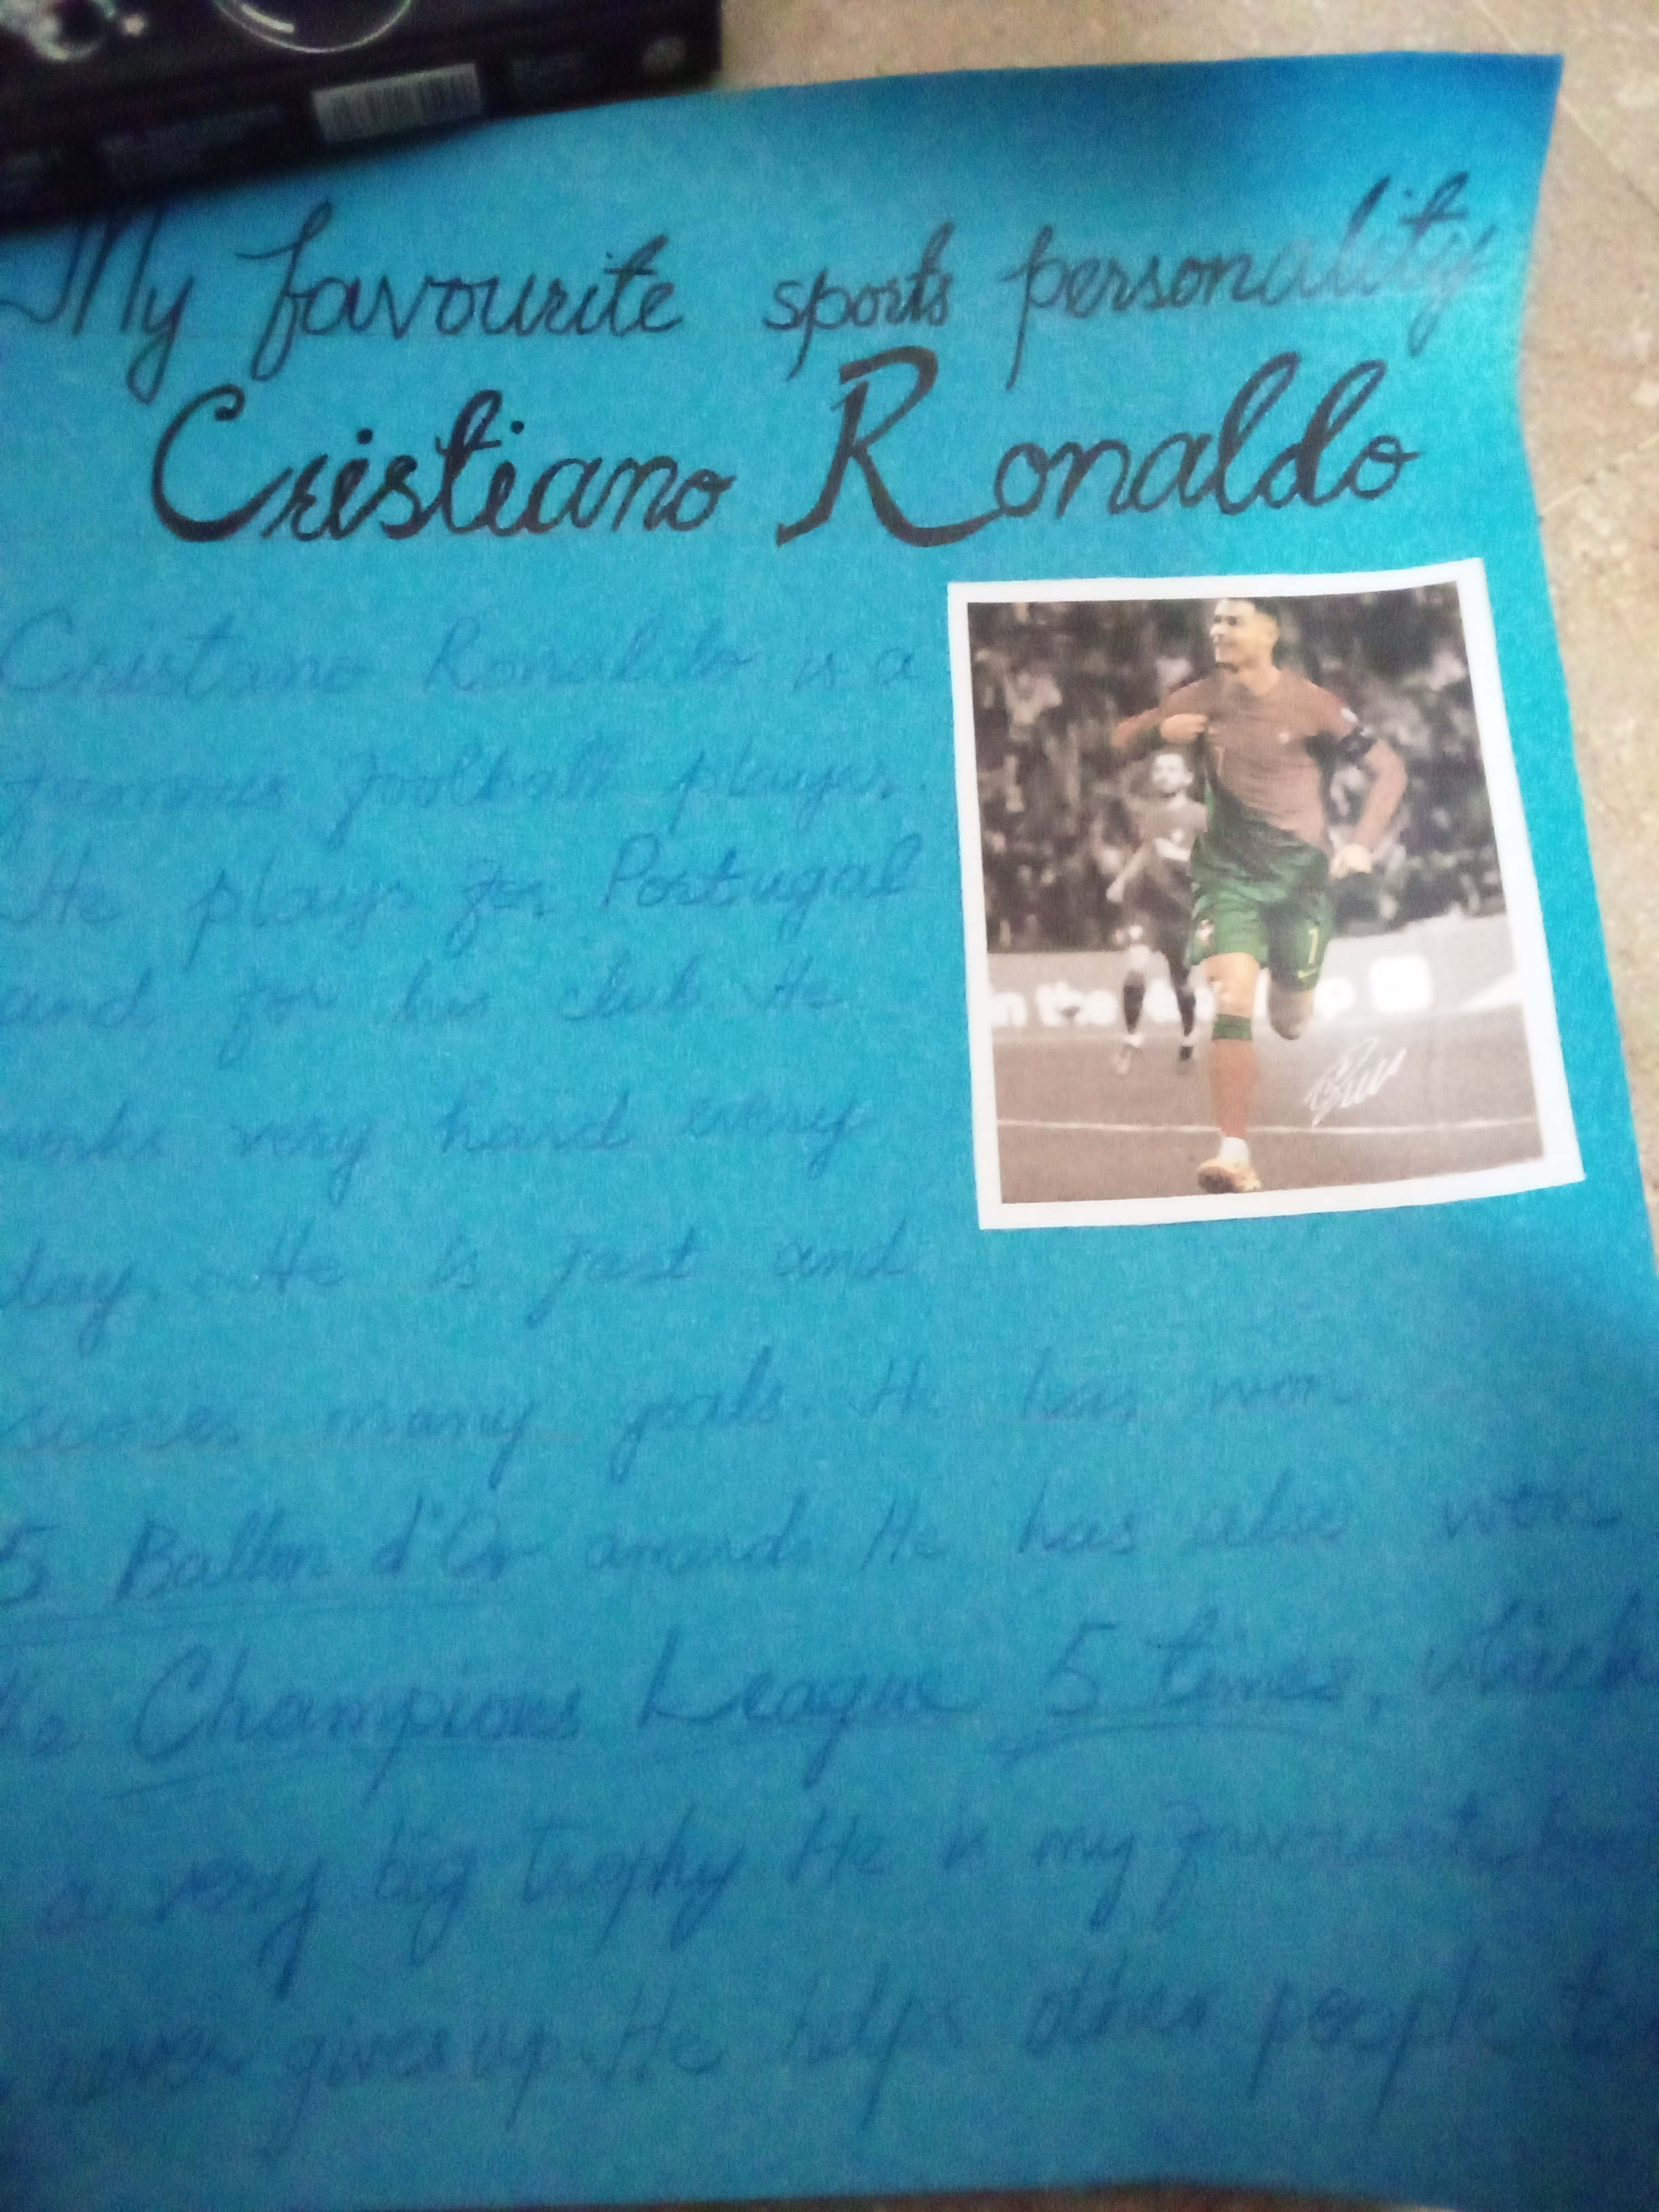 My favourite sports personality
Cristiano Ronaldo
Cristano Ronaldo is a
famous football player.
He plays for Portugal
and for his club. He
works very hard every
day. He is fast and
scores many goals. He has won
5 Ballon d'Or awards. He has also won
the Champions League 5 times, which
a very big trophy He is my favourite
never gives up. He helps other people to
in the
1